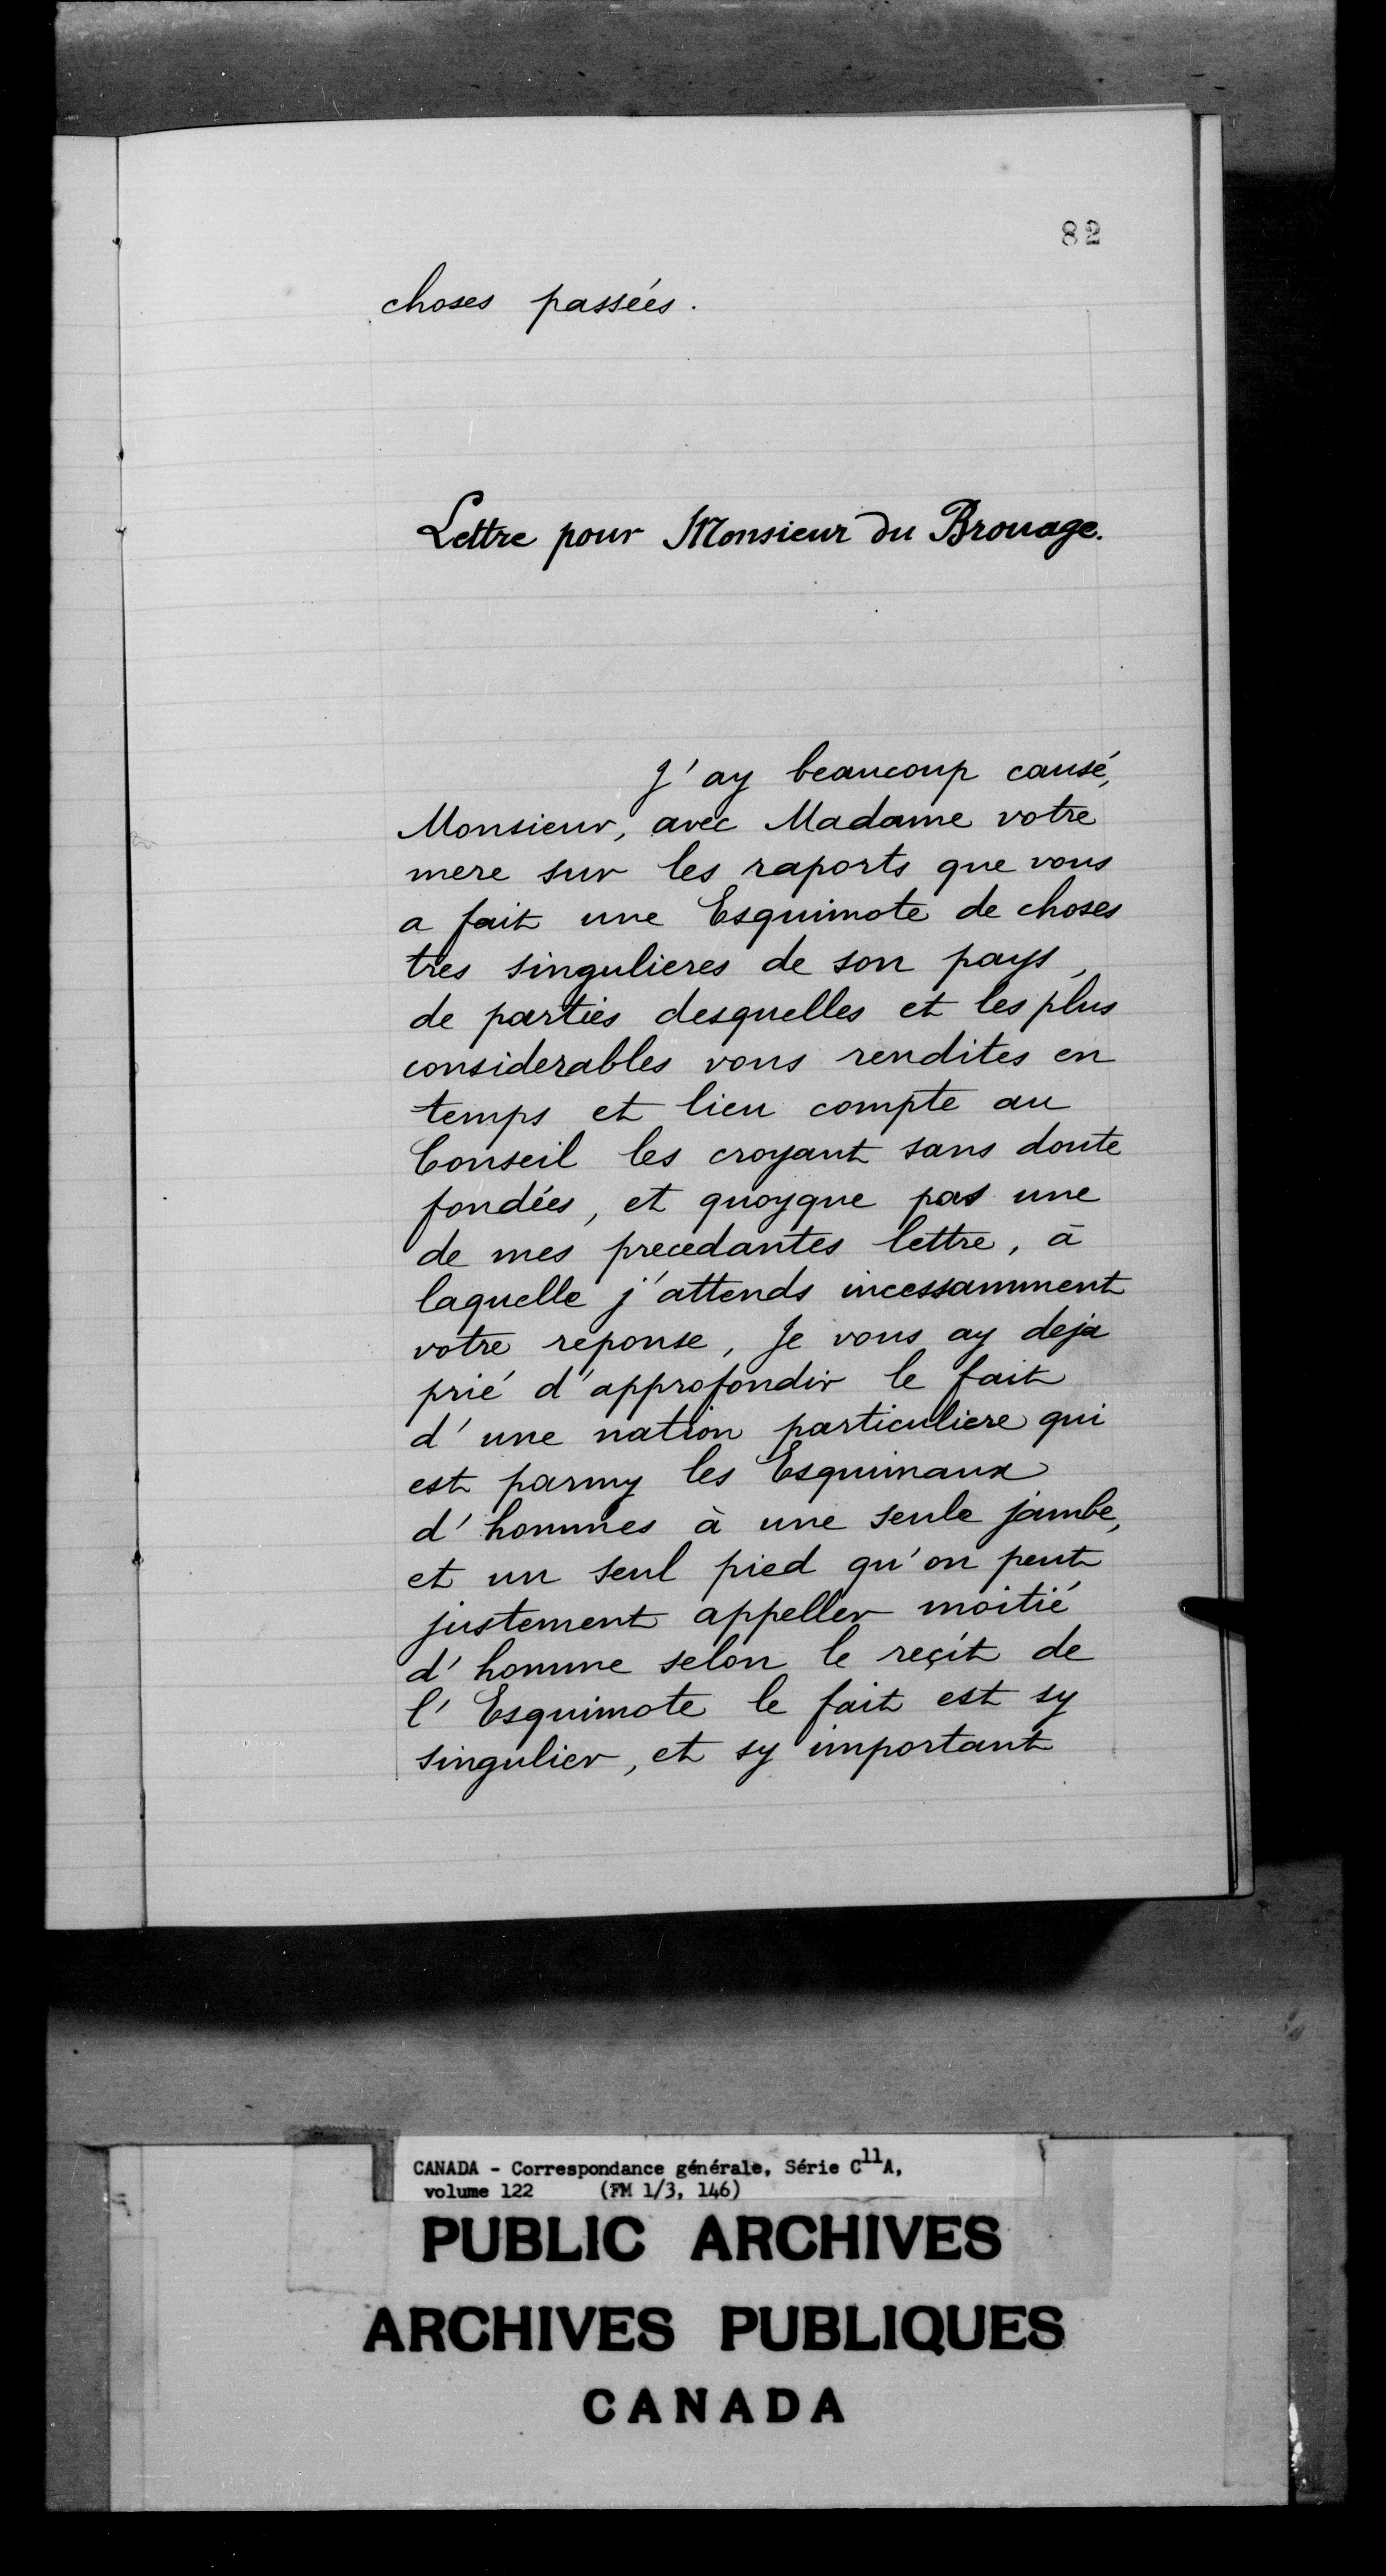 82
choses passées.
Lettre pour Monsieur du Brouage.
J'ay beaucoup causé,
Monsieur, avec Madame votre
mere sur les raports que vous
a fait une Esquimote de choses
tres singulieres de son pays,
de parties desquelles et les plus
considerables vous rendites en
temps et lieu compte au
Conseil les croyant sans doute
fondées, et quoyque pas une
de mes precedantes lettre, à
laquelle j'attends incessamment
votre reponse, Je vous ay deja
prié d'approfondir le fait
d'une nation particuliere qui
est parmy les Esquimaux
d'hommes à une seule jambe,
et un seul pied qu'on peut
justement appeller moitié
d'homme selon le reçit de
l'Esquimote le fait est sy
singulier, et sy important
CANADA - Correspondance générale, Série C11A,
volume 122 (FM 1/3, 146)
PUBLIC ARCHIVES
ARCHIVES PUBLIQUES
CANADA